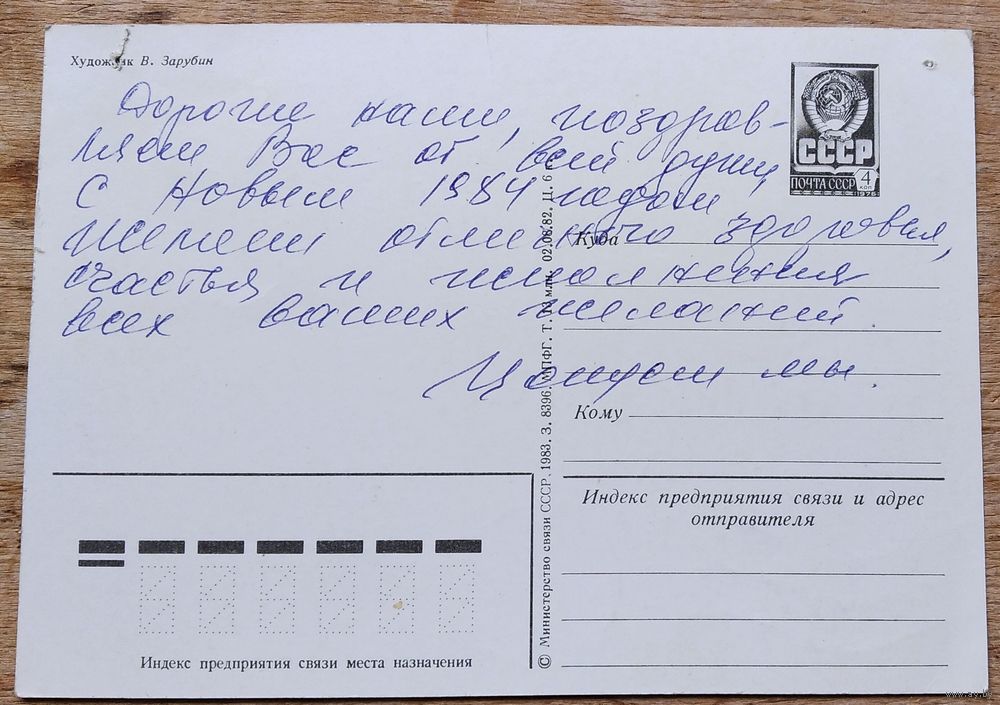 Художник В. Зарубин
Дорогие наши, поздрав-
ляем Вас от всей души
с Новым 1984 годом
Желаем отличного здоровья,
счастья и исполнения
всех ваших желаний.
Целуем мы.
СССР
ПОЧТА СССР
4
КОП
1975
Куда
Кому
Индекс предприятия связи и адрес
отправителя
© Министерство связи СССР. 1983. З. 8396. МПФГ. Т. млн. 02.08.82. Ц. 6 к
Индекс предприятия связи места назначения
www.ay.by